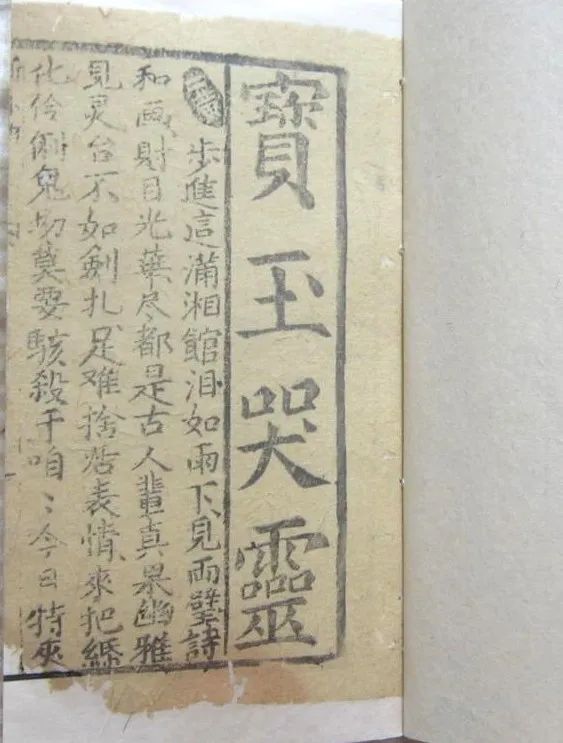 寶玉哭靈
步進這瀟湘館泪如雨下見兩壁詩
和畫財目光華尽都是古人輩真果幽雅
見灵台不如劍扎足难捨店表情來把緜
化伶俐鬼切莫要駭殺于咱〻今日特來